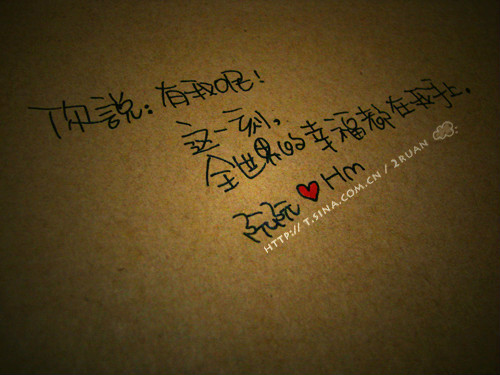 你說：有我呢！
这一刻，
全世界的幸福都在我手上。
阮阮♥Hm
HTTP://T.SINA.COM.CN/2RUAN